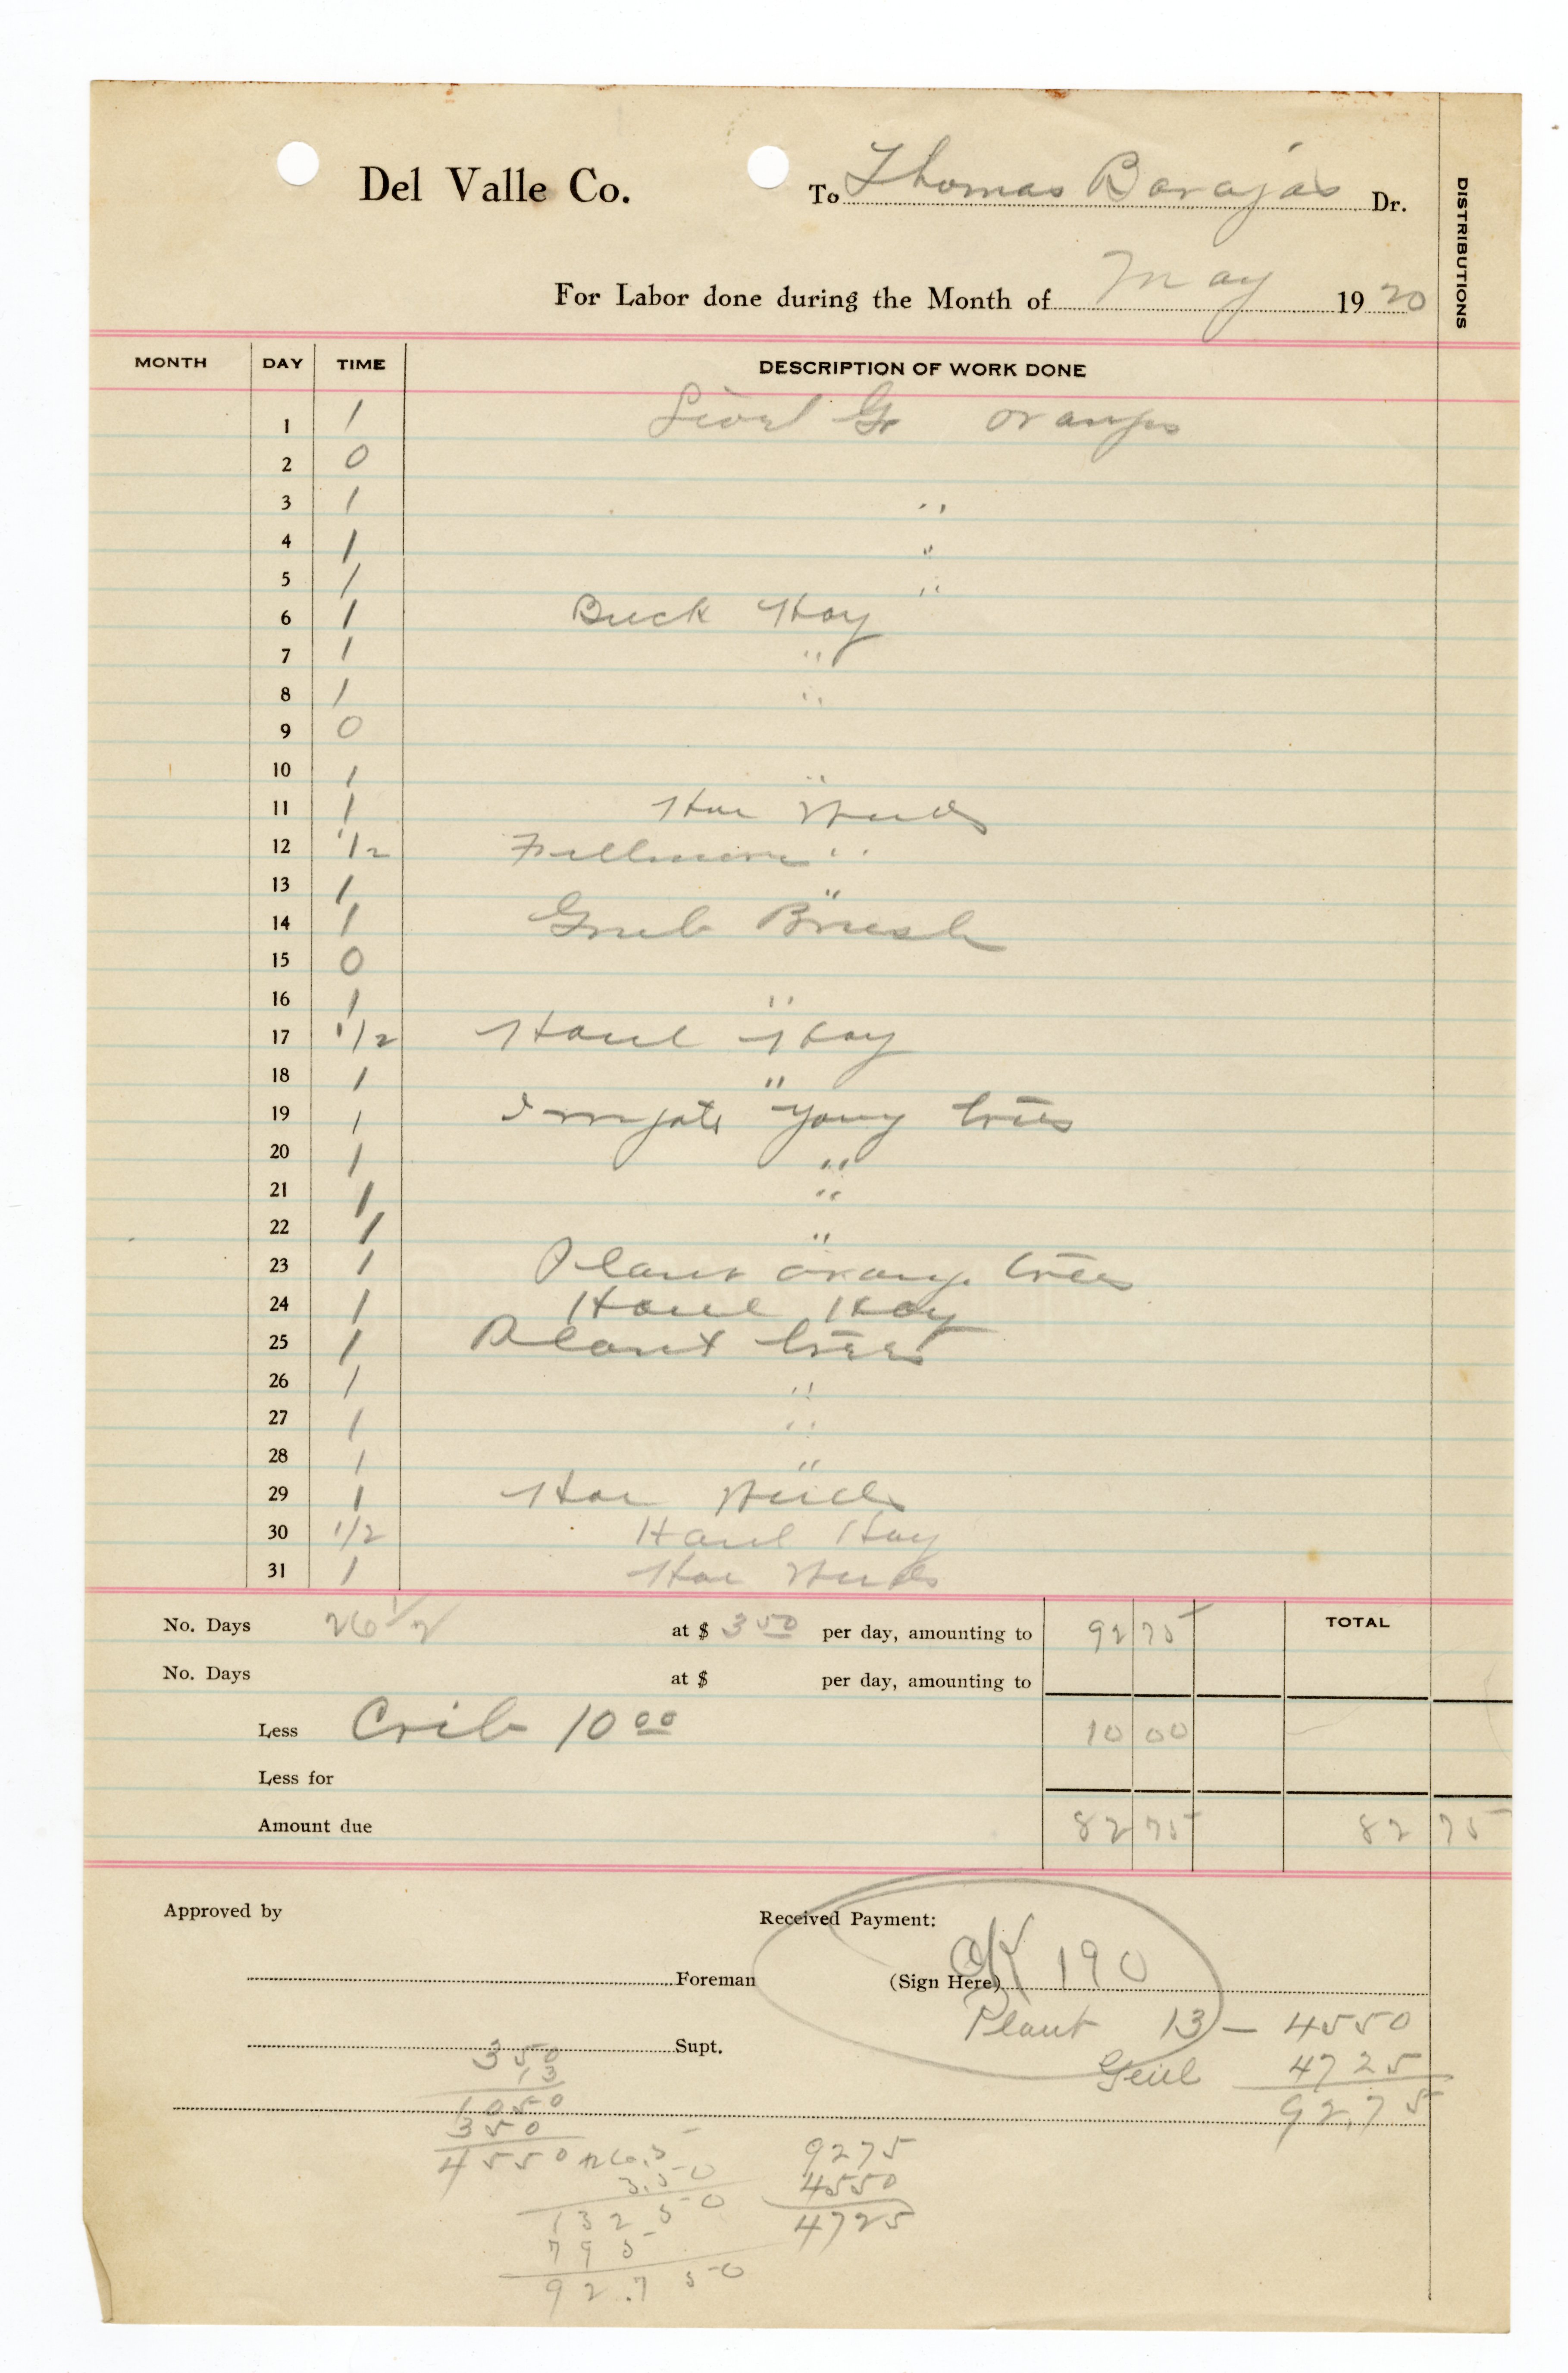 Del Valle Co. To Thomas Barajas Dr.
DISTRIBUTIONS
For Labor done during the Month of May 1920
MONTH DAY TIME DESCRIPTION OF WORK DONE
1 1 oranges
2 0
3 1 "
4 1 "
5 1 "
6 1 Buck Hay
7 1 "
8 1 "
9 0
10 1 "
11 1 Hoe Weeds
12 1/2 Fillmore "
13 1 "
14 1 Grub Brush
15 0
16 1 "
17 1/2 Haul Hay
18 1 "
19 1 Irrigate Young trees
20 1 "
21 1 "
22 1 "
23 1 Plant orange trees
24 1 Haul Hay
25 1 Plant trees
26 1 "
27 1 "
28 1 "
29 1 Hoe Weeds
30 1/2 Haul Hay
31 1 Hoe Weeds
No. Days 26 1/2 at $ 3 50 per day, amounting to 92 75 TOTAL
No. Days at $ per day, amounting to
Less Crib 10 00 10 00
Less for
Amount due 82 75 82 75
Approved by Received Payment:
Foreman (Sign Here) OK 190
Plant 13 – 4550
Supt. Genl 4725
92.75
350
13
1050
350
4550
26.5
3.50
13250
795
92.750
9275
4550
4725